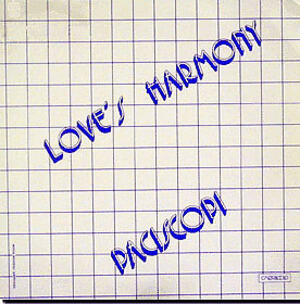 LOVE'S HARMONY
PACISCOPI